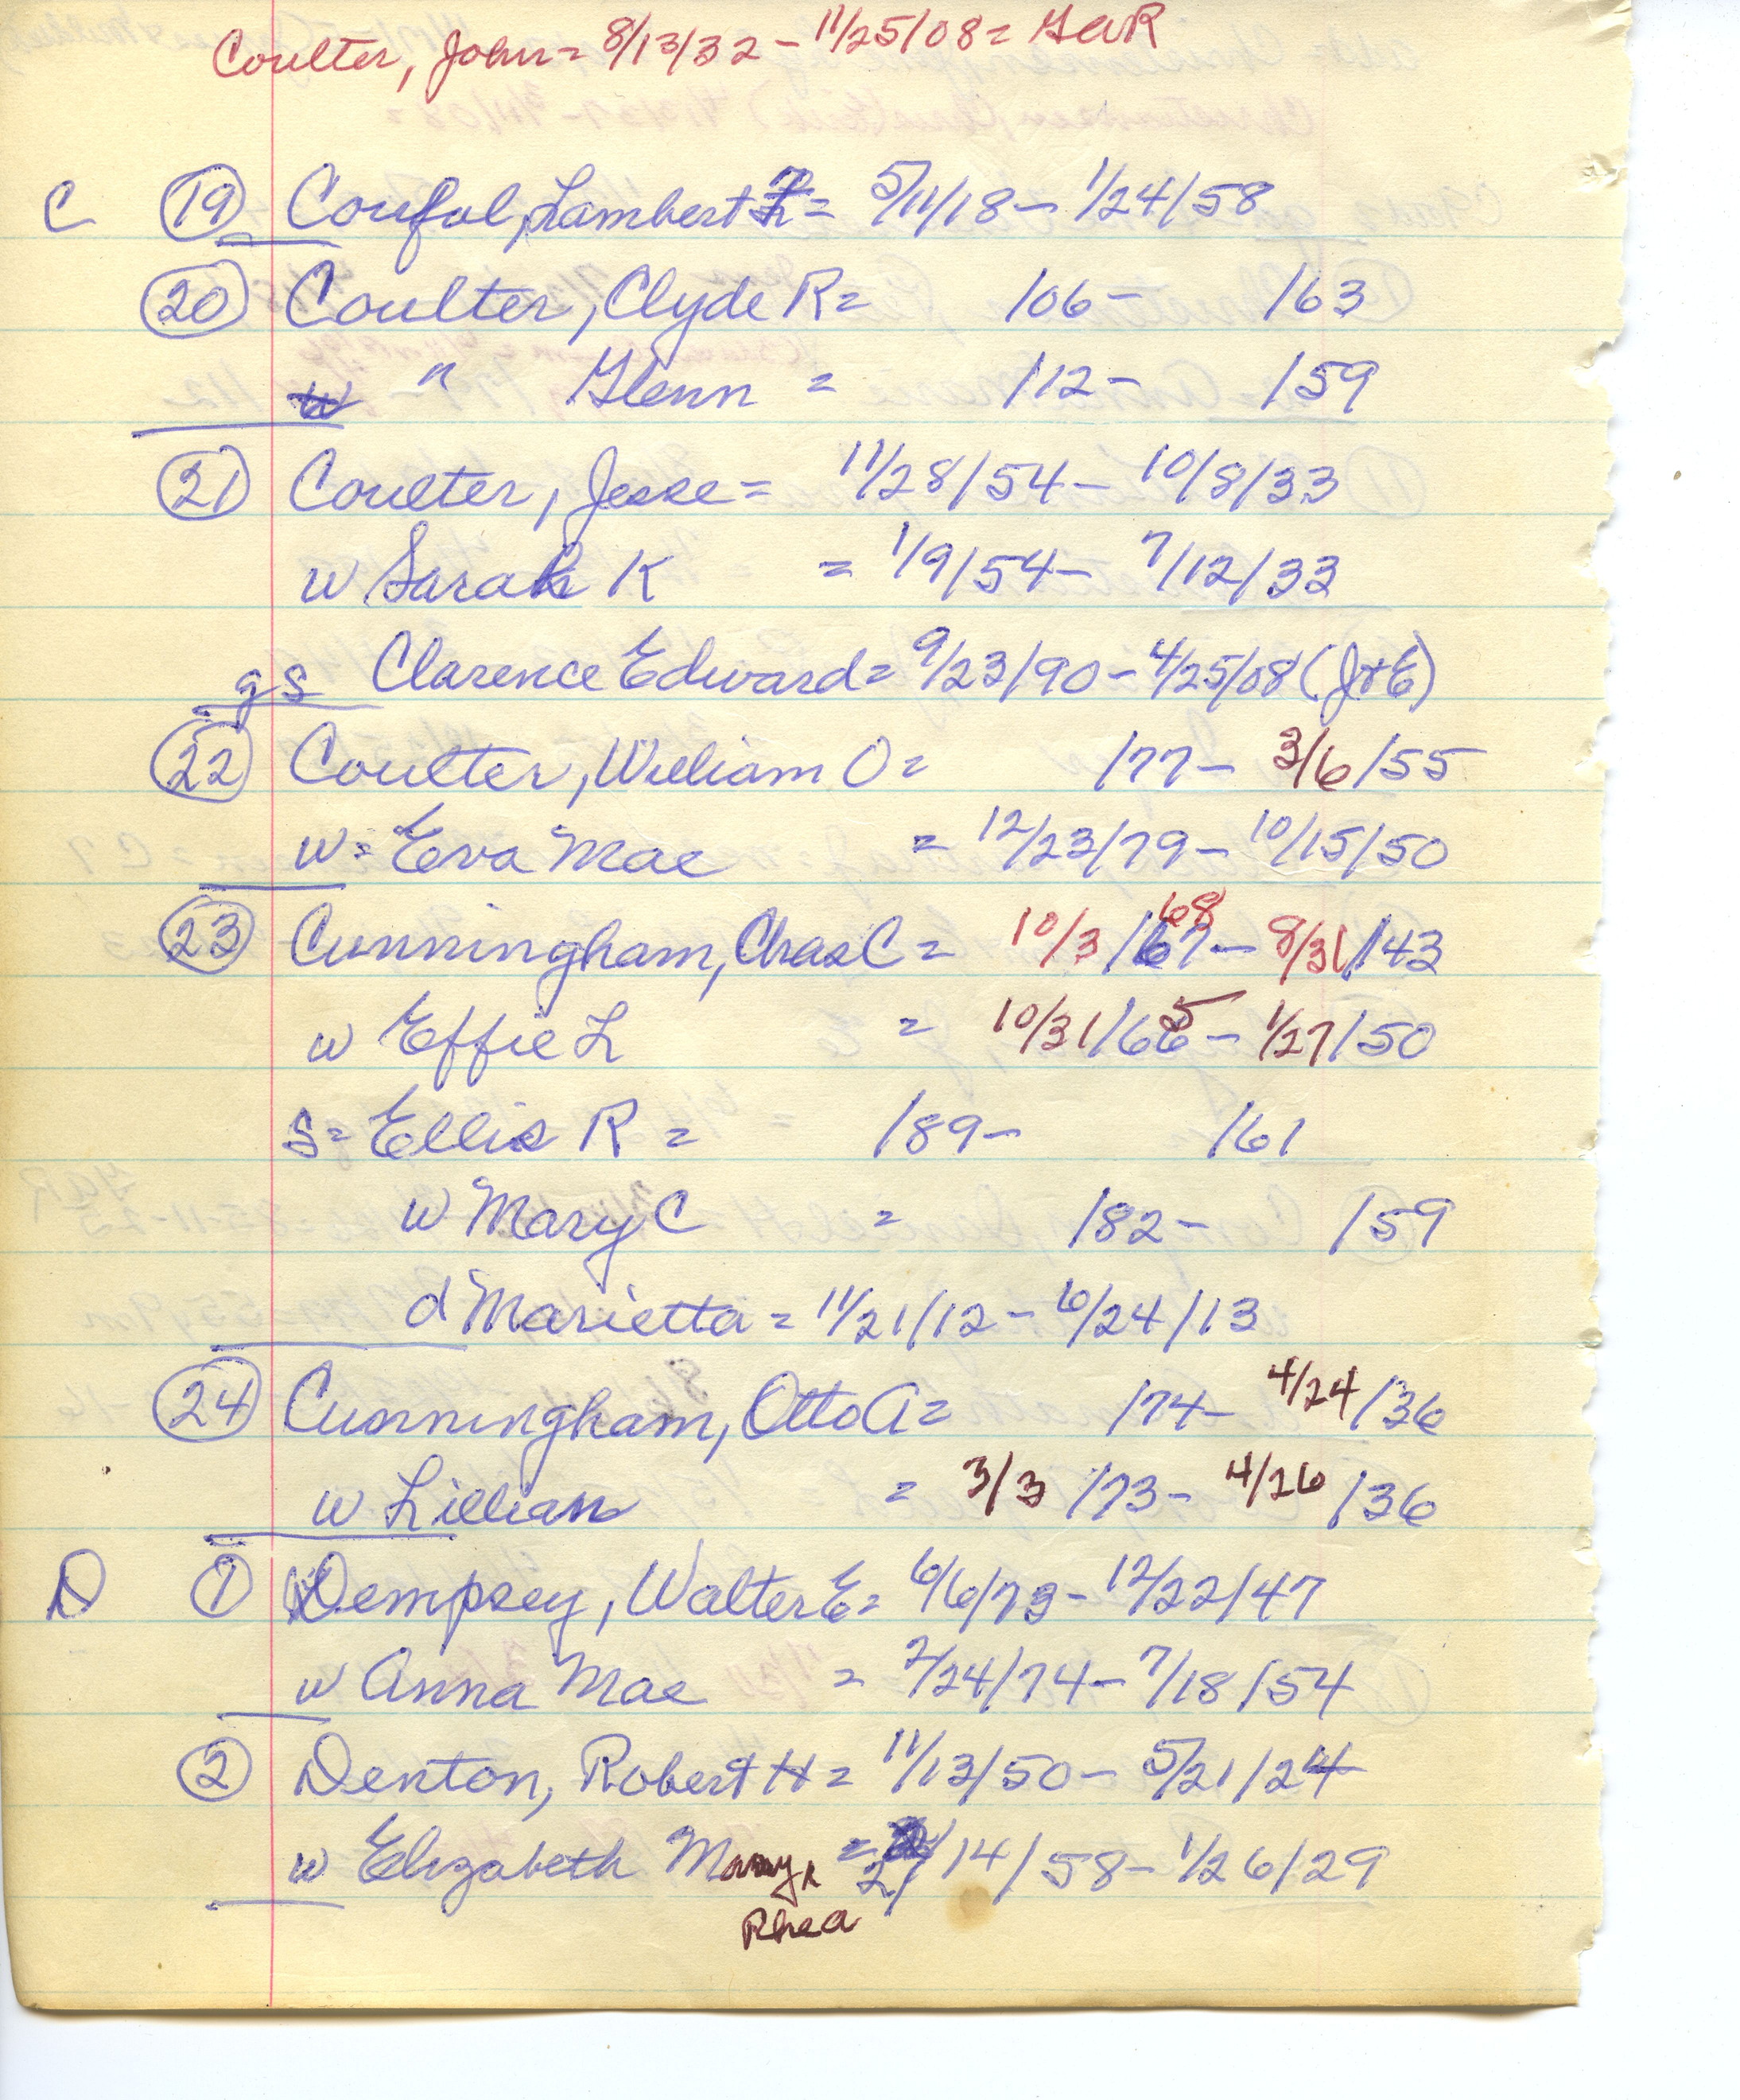 Coulter, John = 8/13/32 - 11/25/08 = GaR
C 19 Coufal, Lambert = 5/11/18 - 1/24/58
20 Coulter, Clyde R = /06 - /63
" Glenn = /12 - /59
21 Coulter, Jesse = 11/28/54 - 10/8/33
w Sarah K = 1/9/54 - 7/12/33
gs Clarence Edward = 9/23/90 - 4/25/08 (J+E)
22 Coulter, William O = /77 - 3/6/55
w = Eva Mae = 12/23/79 - 10/15/50
68
23 Cunningham, Chas C = 10/3/67 - 8/31/43
5
w Effie L = 10/31/66 - 1/27/50
S = Ellis R = /89 - /61
w Mary C = /82 - /59
d Marietta = 11/21/12 - 6/24/13
24 Cunningham, Otto A = /74 - 4/24/36
w Lillian = 3/3/73 - 4/26/36
D 1 Dempsey, Walter E = 6/6/73 - 12/22/47
w Anna Mae = 2/24/74 - 7/18/54
2 Denton, Robert H = 11/13/50 - 5/21/24
w Elizabeth = 2/14/58 - 1/26/29
Rhea